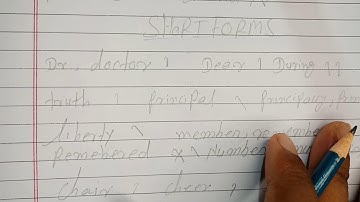 SHORT FORMS
Dr, doctor ) Dear | During 11
truth ) principal \ principaly,
liberty \ member, remember
Remebered x \ Number
Chair ) cheer ,